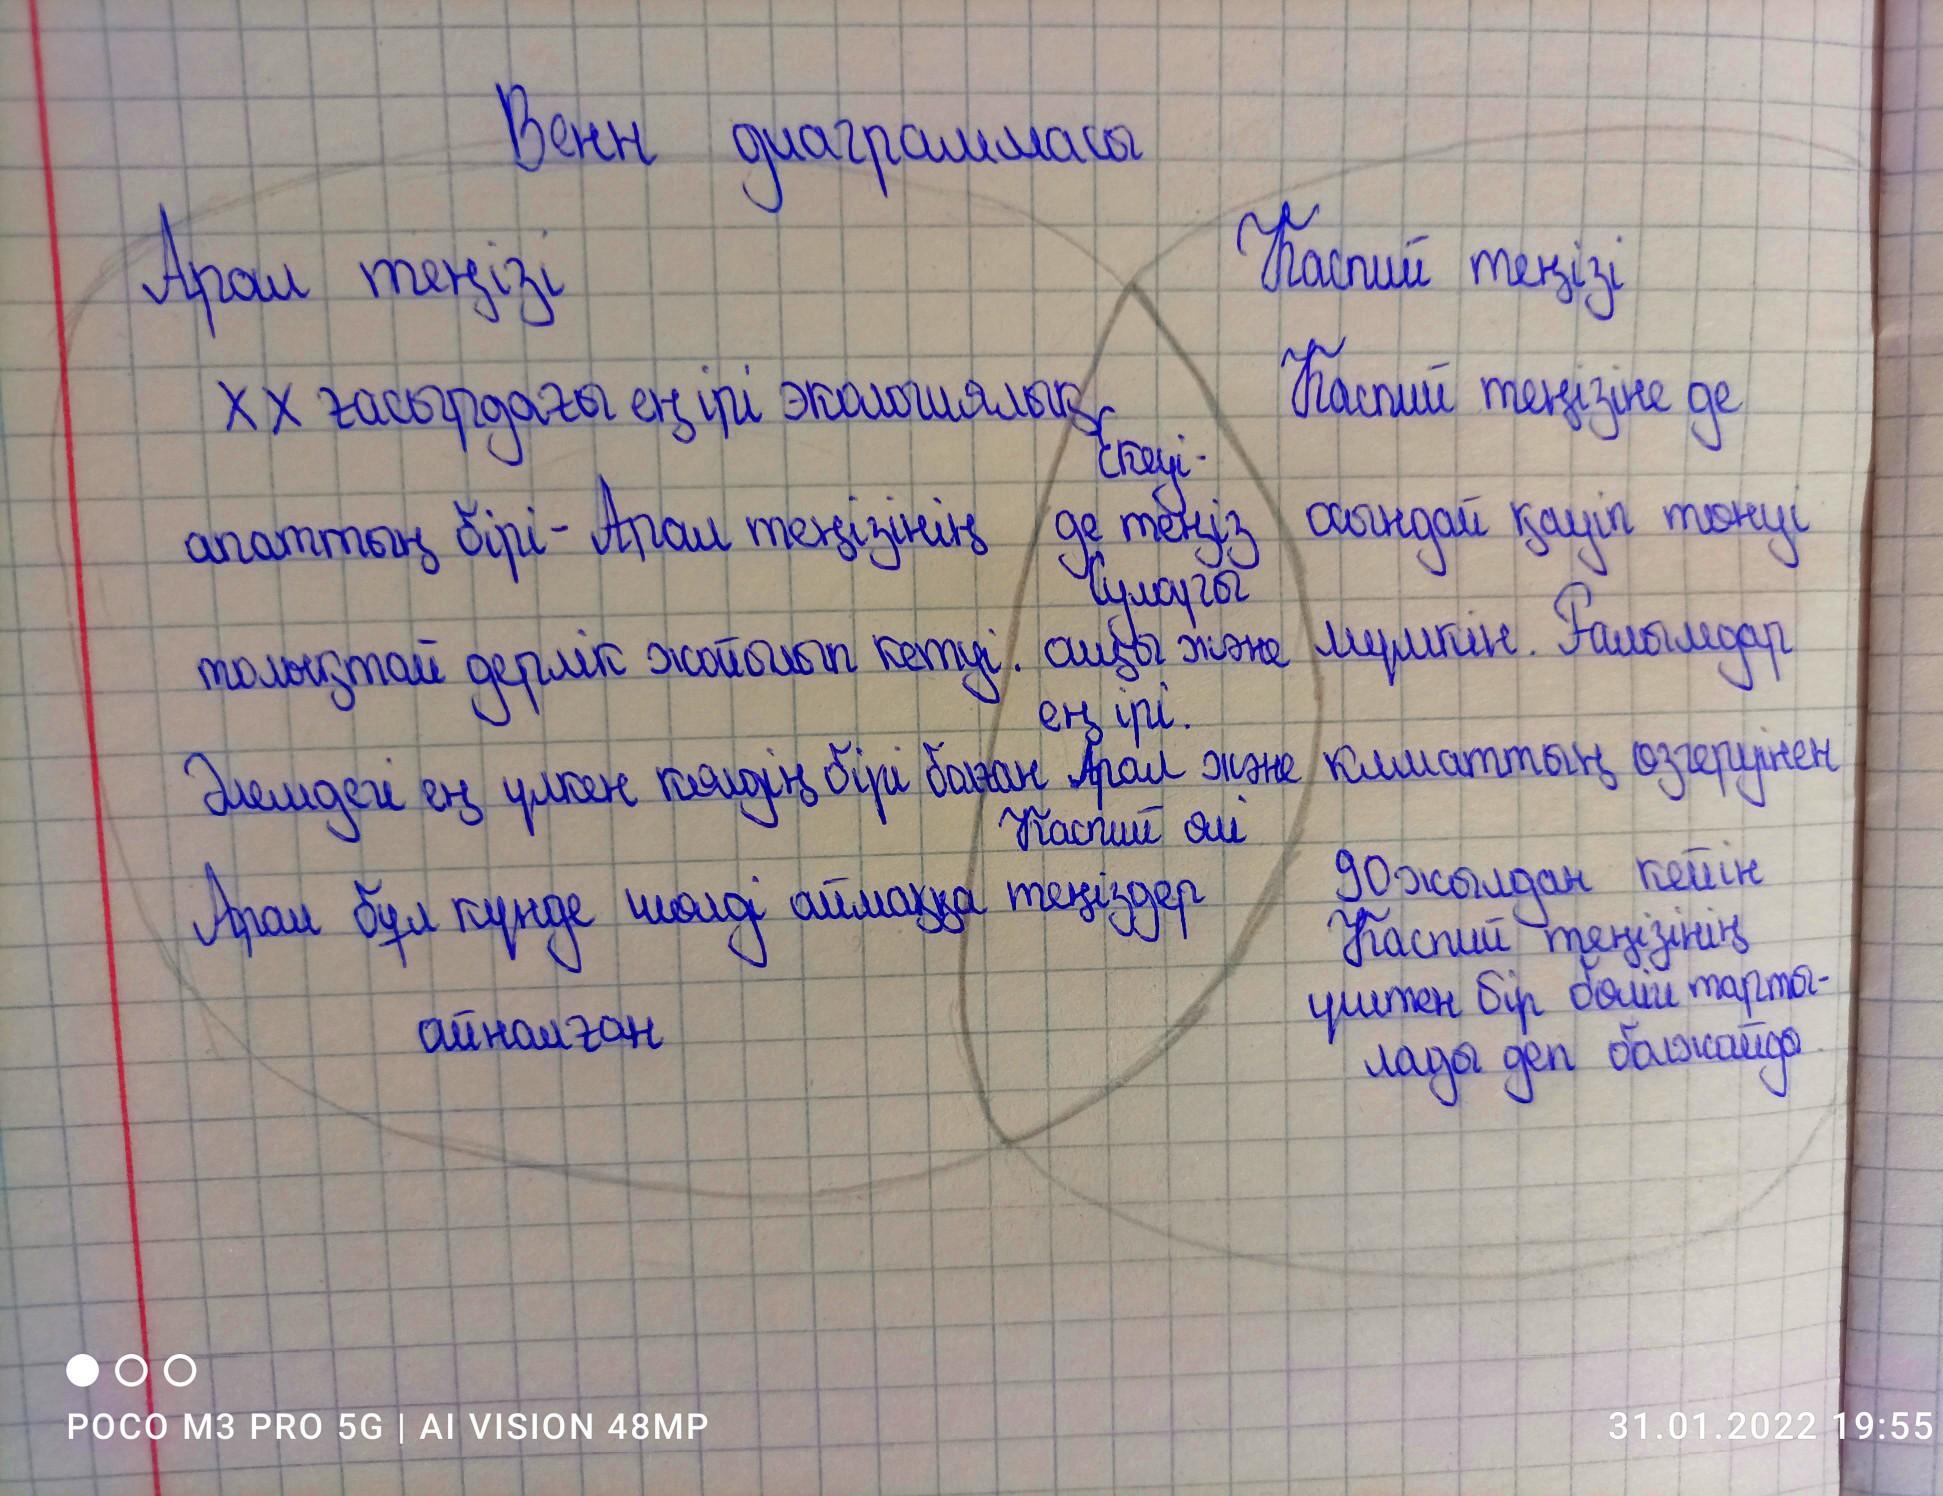 Венн диаграммасы
Арал теңізі
XX ғасырдағы ең ірі экологиялық
апаттың бірі - Арал теңізінің
толықтай дерлік жойылып кетуі.
Әлемдегі ең үлкен көлдің бірі болған
Арал бұл күнде шөлді аймаққа
айналған
Екеуі-
де теңіз
Сулары
ащы және
ең ірі.
Арал және
Каспий өлі
теңіздер
Каспий теңізі
Каспий теңізіне де
осындай қауіп төнуі
мүмкін. Ғалымдар
климаттың өзгеруінен
90 жылдан кейін
Каспий теңізінің
үштен бір бөлігі тарты-
лады деп болжайды
POCO M3 PRO 5G | AI VISION 48MP
31.01.2022 19:55